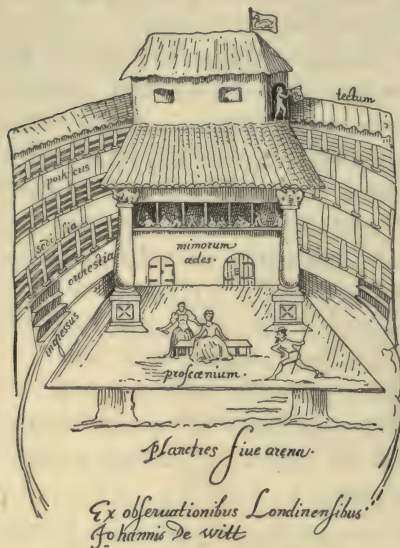 tectum
porticus
sedilia
orchestra
mimorum
ædes.
ingressus
proscænium.
planities siue arena.
Ex obſeruationibus Londinenſibus
Johannis De witt